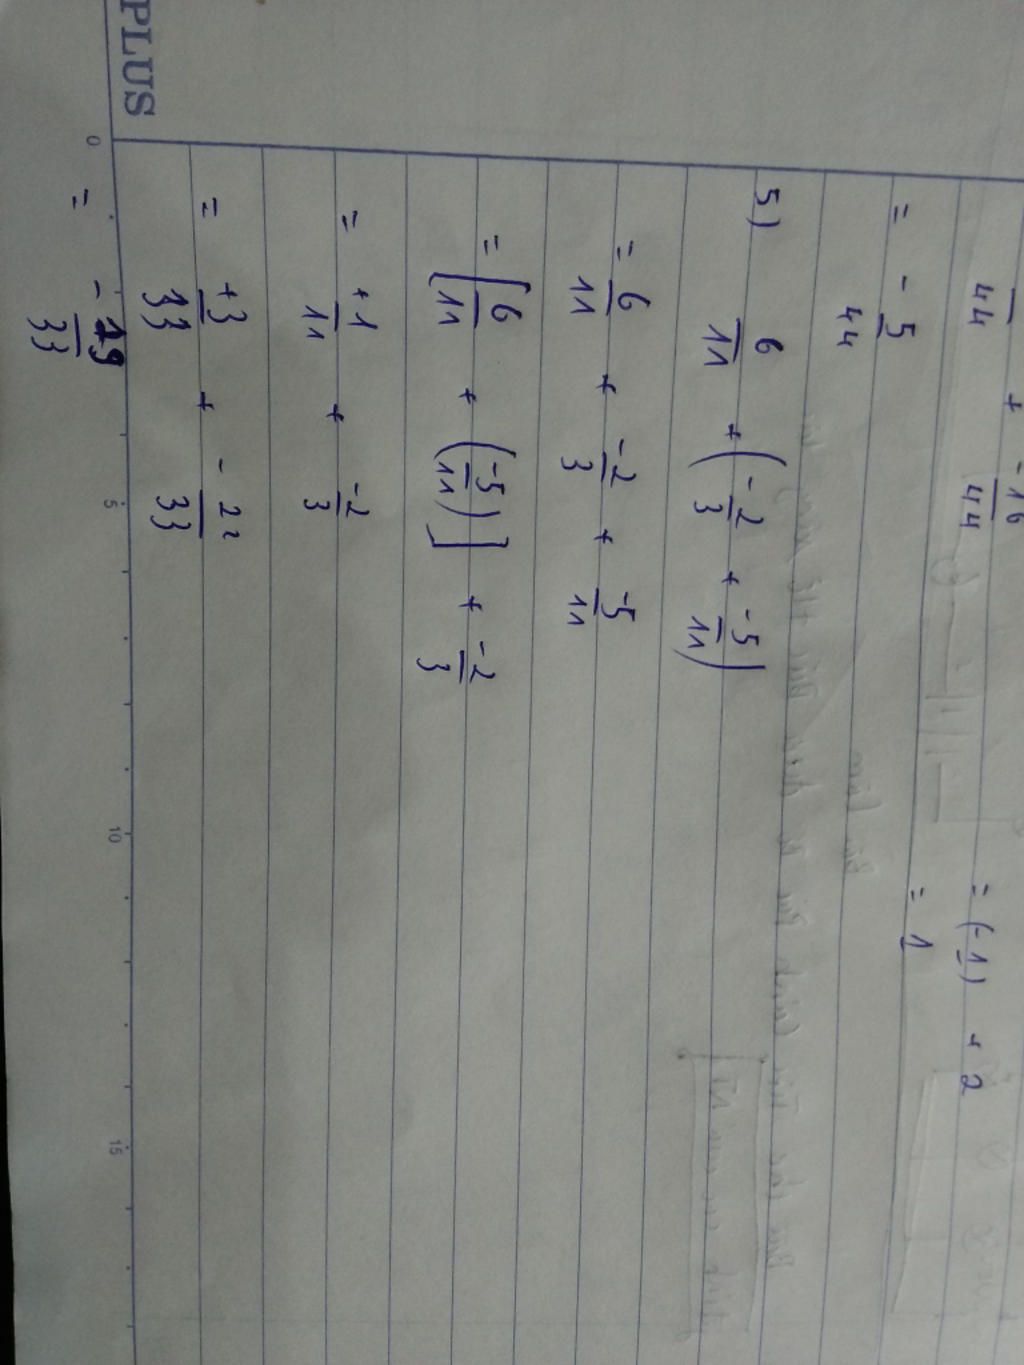 44 + -16/44
= (-1) + 2
= -5/44
= 1
5) 6/11 + (-2/3 + -5/11)
= 6/11 + -2/3 + -5/11
= [6/11 + (-5/11)] + -2/3
= +1/11 + -2/3
= +3/33 + -22/33
= -19/33
PLUS
0 5 10 15